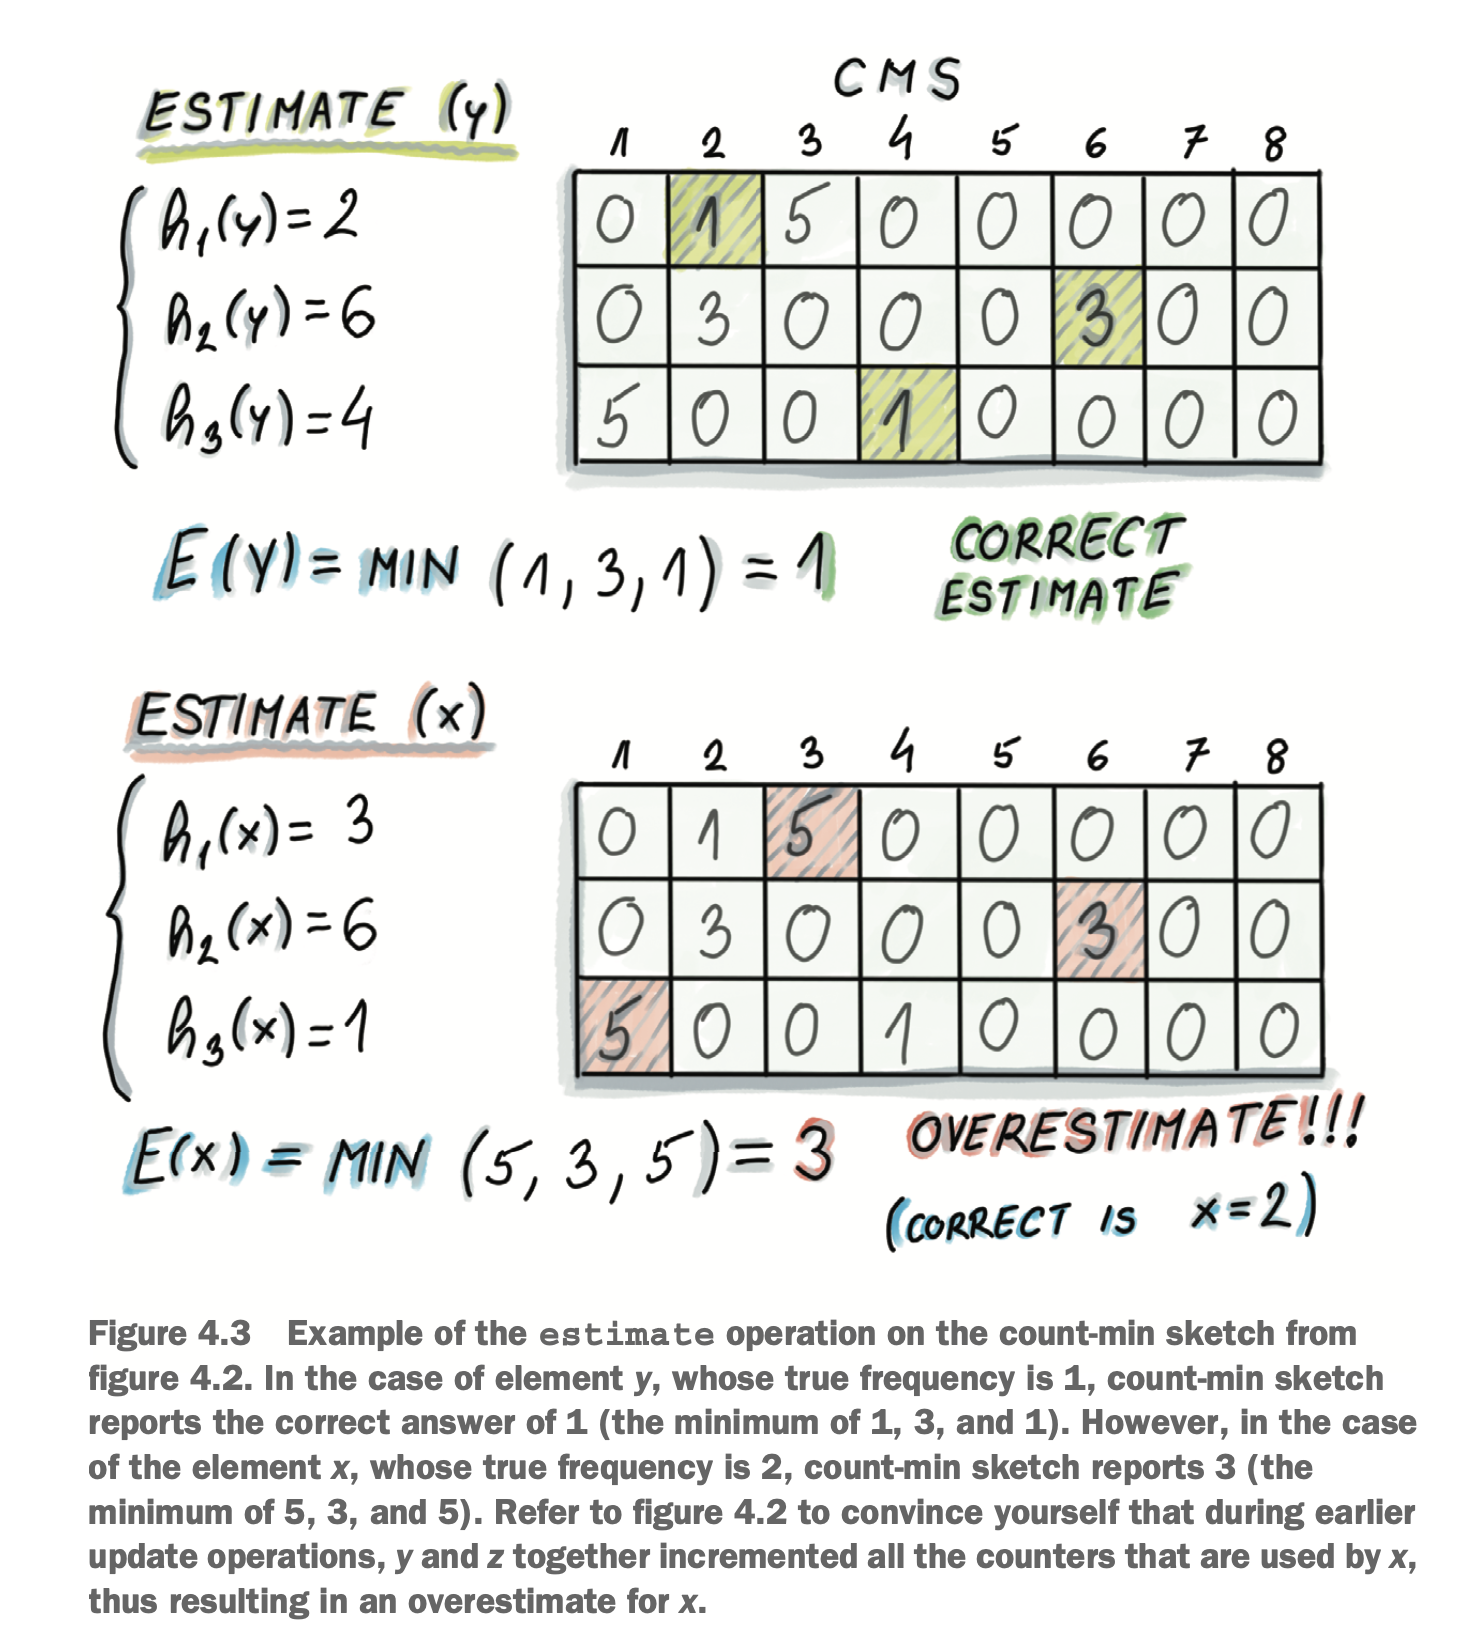 CMS
ESTIMATE (y)
1 2 3 4 5 6 7 8
h1(y)=2
0 1 5 0 0 0 0 0
h2(y)=6
0 3 0 0 0 3 0 0
h3(y)=4
5 0 0 1 0 0 0 0
E(Y)= MIN (1, 3, 1) = 1
CORRECT
ESTIMATE
ESTIMATE (x)
1 2 3 4 5 6 7 8
h1(x)= 3
0 1 5 0 0 0 0 0
h2(x)=6
0 3 0 0 0 3 0 0
h3(x)=1
5 0 0 1 0 0 0 0
E(x) = MIN (5, 3, 5)= 3
OVERESTIMATE!!!
(CORRECT IS x=2)
Figure 4.3 Example of the estimate operation on the count-min sketch from
figure 4.2. In the case of element y, whose true frequency is 1, count-min sketch
reports the correct answer of 1 (the minimum of 1, 3, and 1). However, in the case
of the element x, whose true frequency is 2, count-min sketch reports 3 (the
minimum of 5, 3, and 5). Refer to figure 4.2 to convince yourself that during earlier
update operations, y and z together incremented all the counters that are used by x,
thus resulting in an overestimate for x.